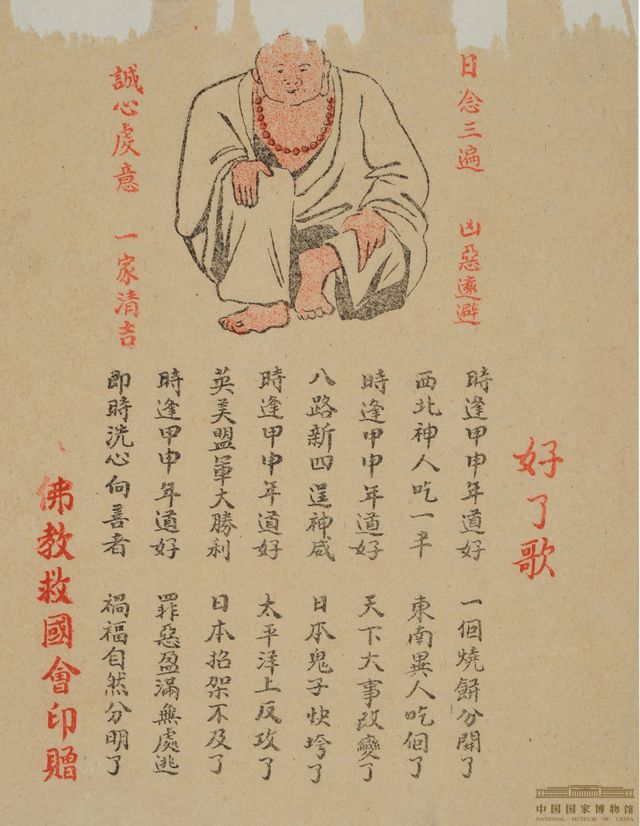 日念三遍 凶惡遠避
誠心虔意 一家清吉
好了歌
時逢甲申年道好 一個燒餅分開了
西北神人吃一半 東南異人吃個了
時逢甲申年道好 天下大事改變了
八路新四逞神威 日本鬼子快垮了
時逢甲申年道好 太平洋上反攻了
英美盟軍大勝利 日本招架不及了
時逢甲申年道好 罪惡盈滿無處逃
即時洗心向善者 禍福自然分明了
佛教救國會印贈
中国国家博物馆
NATIONAL MUSEUM OF CHINA